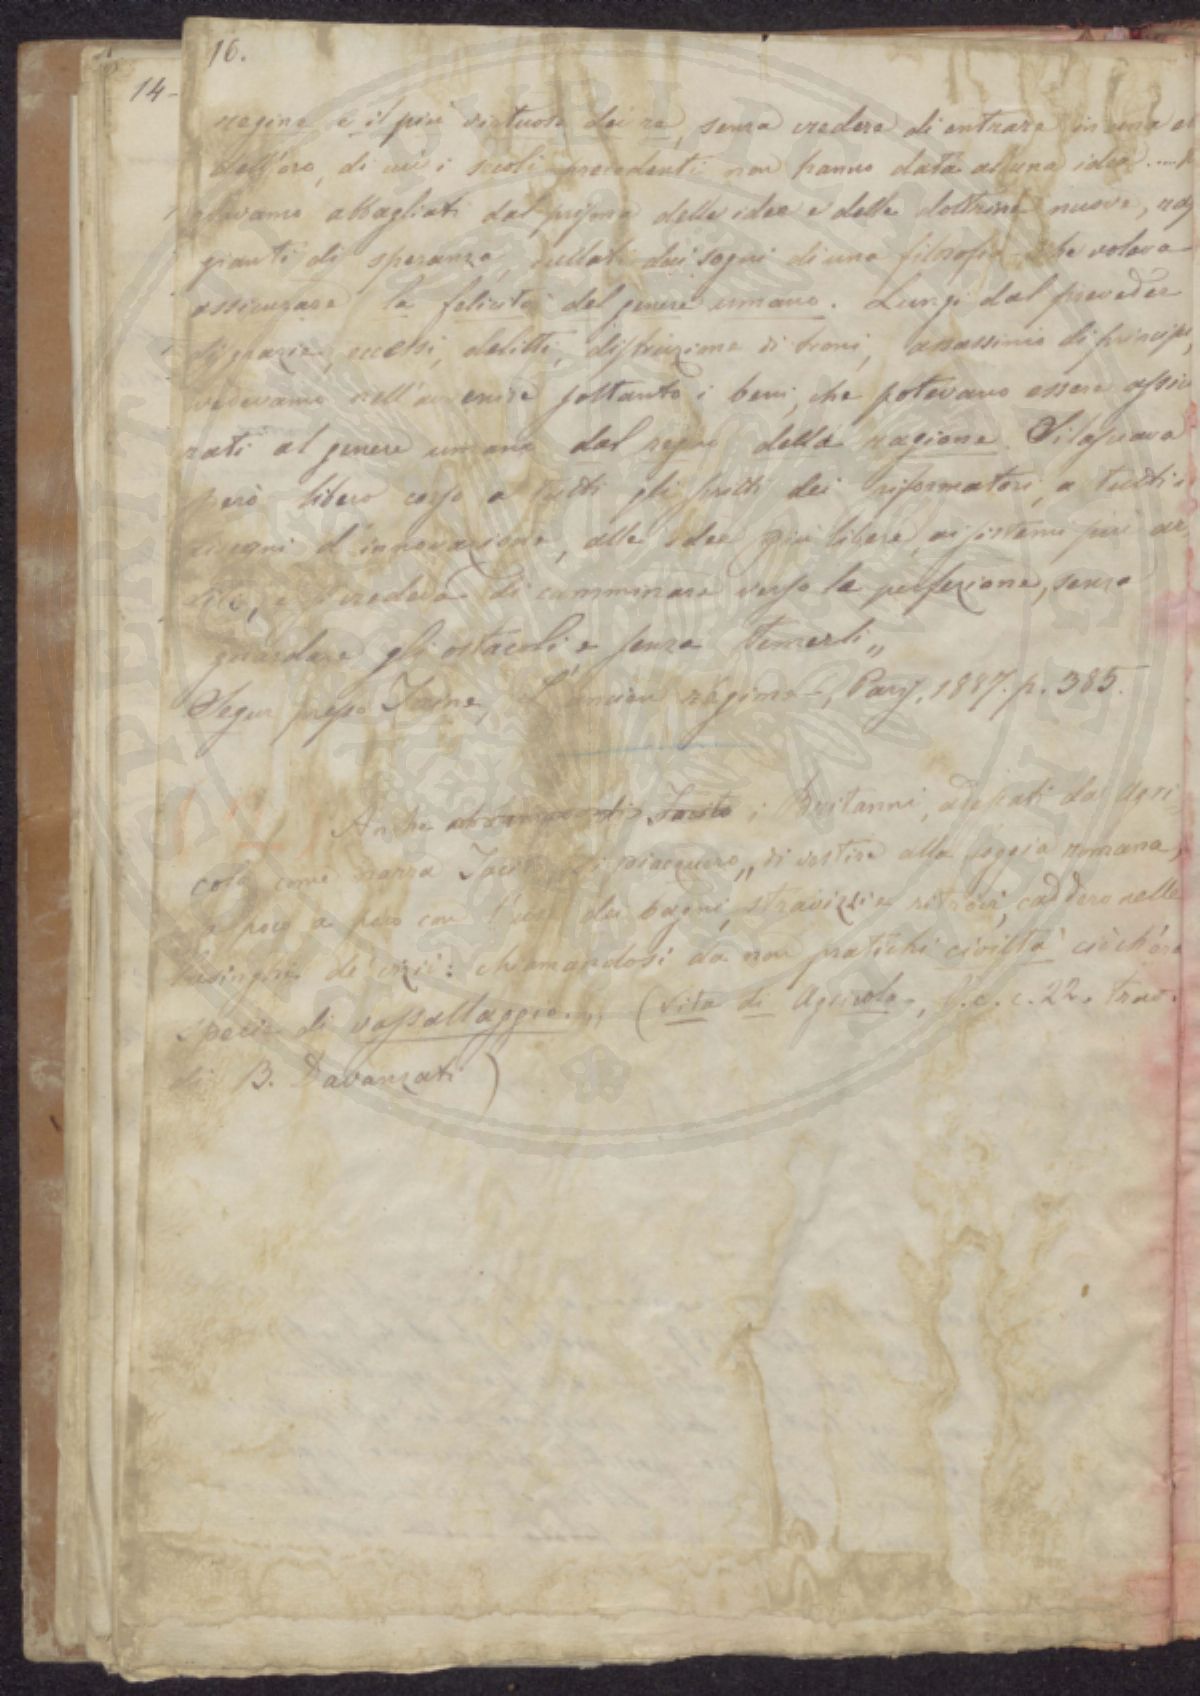 16.
14-
regina e il più virtuoso dei re, senza credere di entrare in una e
dell'oro, di cui i secoli precedenti non hanno data alcuna idea....
abbagliati dal prisma delle idee e delle dottrine nuove, rag
gianti di speranza, cullati dai sogni di una filosofia che voleva
assicurare la felicità del genere umano. Lungi dal prevedere
disgrazie, eccessi, delitti, distruzione di troni, assassinio di principi,
vedevamo nell'avvenire soltanto i beni, che potevano essere assicu
rati al genere umano dal regno della ragione. Si lasciava
però libero corso a tutti gli scritti dei riformatori, a tutti i
disegni d'innovazione, alle idee più libere, ai sistemi più ar
diti, e si credeva di camminare verso la perfezione, senza
guardare gli ostacoli e senza temerli„
Segur presso Taine, L'ancien régime, Paris, 1887. p. 385.
(2)
Anche i Britanni, da Agri
cola come narra Tacito, si piacquero „di vestire alla foggia romana,
a poco a poco con l'uso dei bagni, stravizzi e ritrovi, caddero nelle
lusinghe de' vizii: chiamandosi da non pratichi civiltà ciò ch'era
specie di vassallaggio.„ (Vita di Agricola, c. 22. trad.
di B. Davanzati)